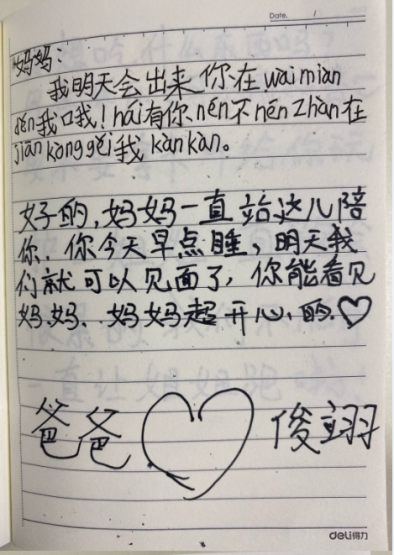 Date. /
妈妈：
我明天会出来你在waimian
děn我口我！hái有你nén不nén zhàn在
jiān kòng gěi我kànkàn。
好的，妈妈一直站这儿陪
你．你今天早点睡，明天我
们就可以见面了，你能看见
妈妈．妈妈超开心的．♡
爸爸 ♡ 俊翊
deli得力